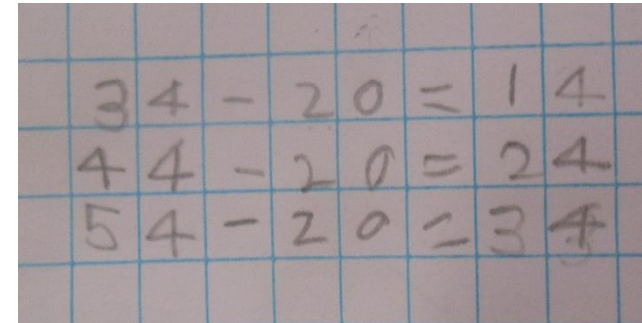 34 - 20 = 14
44 - 20 = 24
54 - 20 = 34